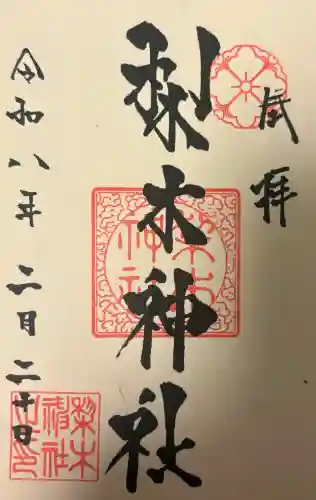 奉拝
梨木神社
令和八年 二月二十日
梨木
神社
梨木
神社
之印